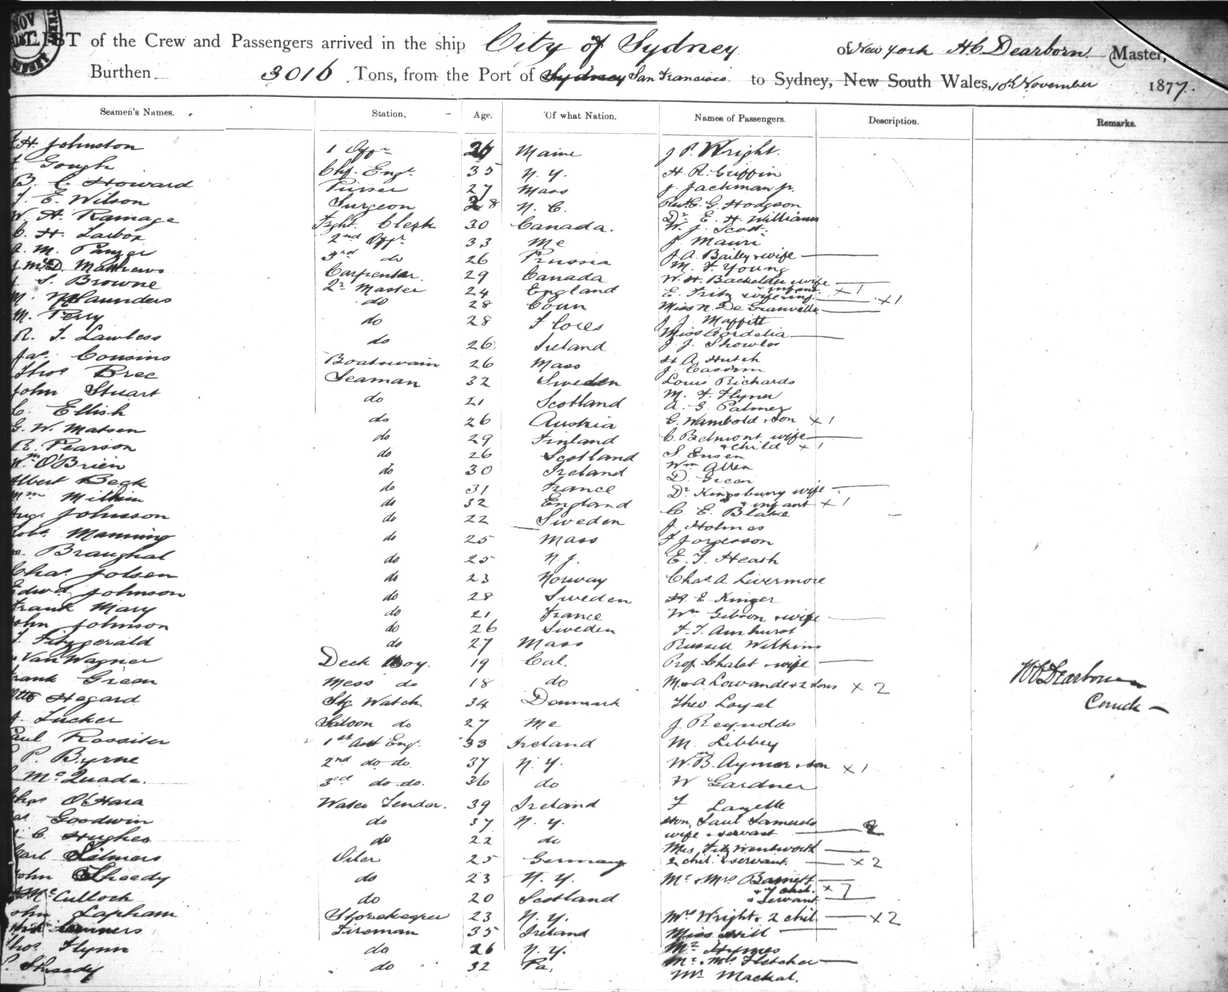 LIST of the Crew and Passengers arrived in the ship City of Sydney of New York H C Dearborn (Master,
Burthen 3016 Tons, from the Port of Sydney San Francisco to Sydney, New South Wales, 10th November 1877.
Seamen's Names. Station, Age. Of what Nation. Names of Passengers. Description. Remarks.
H. Johnston 1 Offr 26 Maine J P. Wright.
Gough Chf. Engr 35 N.Y. H. R. Griffin
B. C. Howard Purser 27 Mass J Jackman jr.
E. Wilson Surgeon 28 N.C. Rev. C. G. Hodgson
W. H. Ramage Frght. Clerk 30 Canada. Dr. E. H. Williams
W. J. Scott.
C. H. 2nd Offr 33 Me J Mauri
M. 3rd do 26 Russia J. A. Bailey & wife
McD. Matthews Carpenter 29 Canada M. F. Young
S. Browne Qr Master 24 England W. H. Bachelder wife & infant x 1
M. Saunders do 28 Conn E. Fritz & wife x 1
Miss N. De Granville
M. Terry do 28 Flores J. J. Maffitt
Miss Cordelia
R. T. Lawless do 26 Ireland J. J. Showles
Jas. Cousins Boatswain 26 Mass H A. Hutch
J.
Thos Bree Seaman 32 Sweden Louis Richards
John Stuart do 21 Scotland M. F. Flyner
A. G Palmer
C. Ellish do 26 Austria G. Wambold & son x 1
G. W. Matson do 29 Finland C. Belmont wife & child x 1
R. Pearson do 26 Scotland S.
Wm O'Brien do 30 Ireland Wm Allen
Albert Beck do 31 France D.
Wm do 32 England Dr Kingsbury wife & infant x 1
Johnson do 22 Sweden C. E. Blake
J. Holmes
Robt Manning do 25 Mass F Jorgerson
Braughal do 25 N.J. E. T. Heath
Chas. Jolsen do 23 Norway Chas. A Livermore
Edwd Johnson do 28 Sweden H. E.
Frank Mary do 21 France Wm Gibson & wife
John Johnson do 26 Sweden F. T. Amhurst
Fitzgerald do 27 Mass Russell Wilkins
Van Wagner Deck Boy. 19 Cal. Prof. & wife
Frank Green Mess do 18 do Mrs A Lowande & 2 sons x 2
Otto Hegard Stg. Watch 34 Denmark Theo Loyal
Tucker Saloon do 27 Me J Reynolds
Paul Rossiter 1st Asst Eng. 33 Ireland M. Libbey
P. Byrne 2nd do do 37 N.Y. W. B. Aymar & son x 1
McQuade. 3rd do do. 36 do W Gardner
Chas O'Hara Water Tender. 39 Ireland F
Goodwin do 37 N.Y. Hon. Saul Samuels
C Hughes do 22 do wife & servant 2
Carl Oiler 25 Germany Mrs. Fitz Wentworth
2 chil. & servant x 2
John Sheedy do 23 N.Y. Mr & Mrs Barnett & 7 chil. x 7
& servant
McCulloch do 20 Scotland
John Lapham Storekeeper 23 N.Y. Mrs Wright & 2 chil. x 2
Fireman 35 Ireland Miss Hill
Thos Flynn do 26 N.Y. Mr Hymes
Sheedy do 32 Pa. Mr & Mrs Fletcher
Mr Mackal.
H C Dearborn